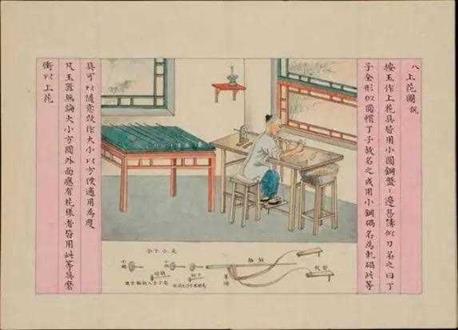 八上花圖說
按玉作上花具皆用小圓鋼盤邊甚薄似刀名之曰丁
子全形似圓帽丁子故名之或用小鋼碢名為軋碢此等
具可以隨意收作大小以方便適用為度
凡玉器無論大小方圓外面應有花樣者皆用此等具磨
衝以上花